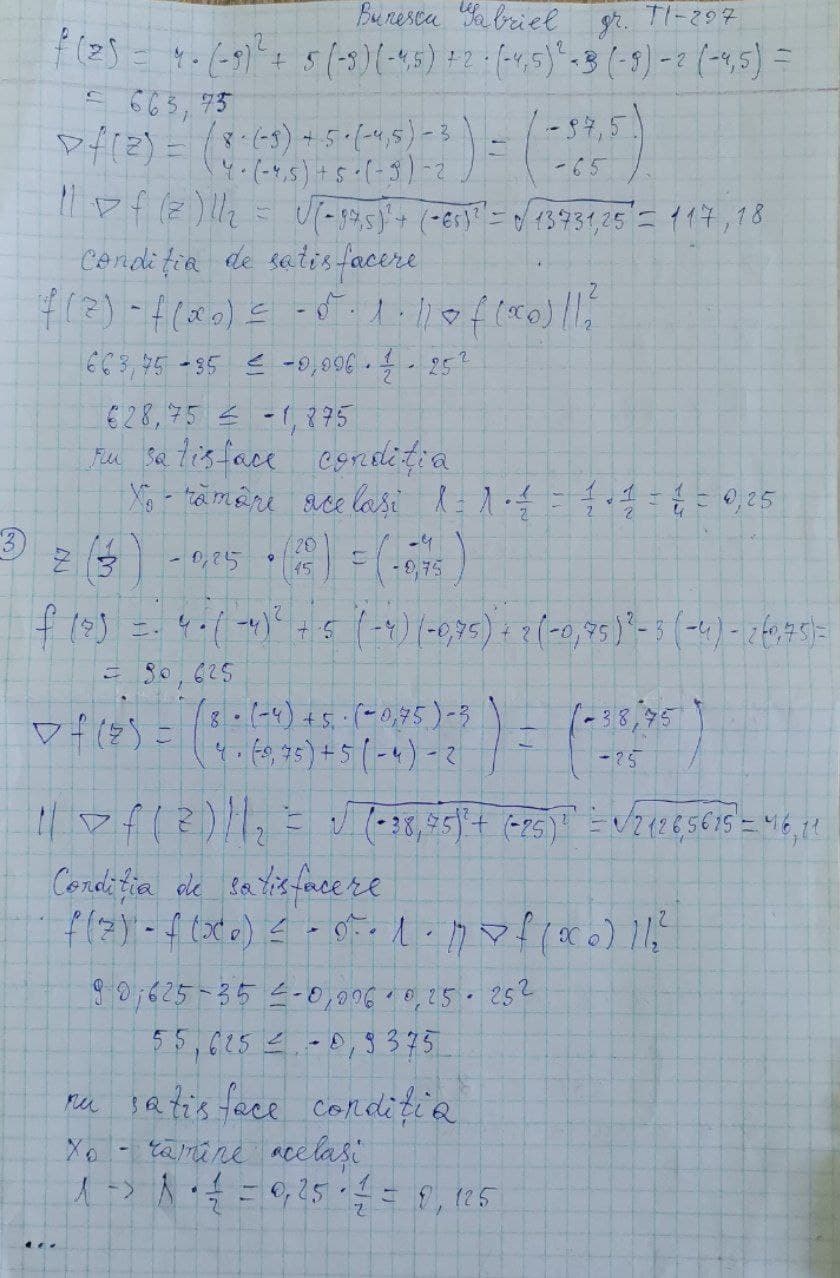 Bunescu Gabriel gr. TI-207
f(z) = 4·(-9)² + 5(-9)(-4,5) + 2·(-4,5)² - 3(-9) - 2(-4,5) =
= 663,75
∇f(z) = (8·(-9) + 5·(-4,5) - 3 / 4·(-4,5) + 5·(-9) - 2) = (-97,5 / -65)
||∇f(z)||₂ = √(-97,5)² + (-65)² = √13731,25 = 117,18
Condiția de satisfacere
f(z) - f(x₀) ≤ -σ · λ · ||∇f(x₀)||₂²
663,75 - 35 ≤ -0,006 · 1/2 · 25²
628,75 ≤ -1,875
nu satisface condiția
x₀ - rămâne același λ = λ · 1/2 = 1/2 · 1/2 = 1/4 = 0,25
③ z (1 / 3) - 0,25 · (20 / 15) = (-4 / -0,75)
f(z) = 4·(-4)² + 5(-4)(-0,75) + 2(-0,75)² - 3(-4) - 2(-0,75) =
= 90,625
∇f(z) = (8·(-4) + 5·(-0,75) - 3 / 4·(-0,75) + 5(-4) - 2) = (-38,75 / -25)
||∇f(z)||₂ = √(-38,75)² + (-25)² = √2126,5625 = 46,11
Condiția de satisfacere
f(z) - f(x₀) ≤ -σ · λ · ||∇f(x₀)||₂²
90,625 - 35 ≤ -0,006 · 0,25 · 25²
55,625 ≤ -0,9375
nu satisface condiția
x₀ - rămîne același
λ -> λ · 1/2 = 0,25 · 1/2 = 0,125
...